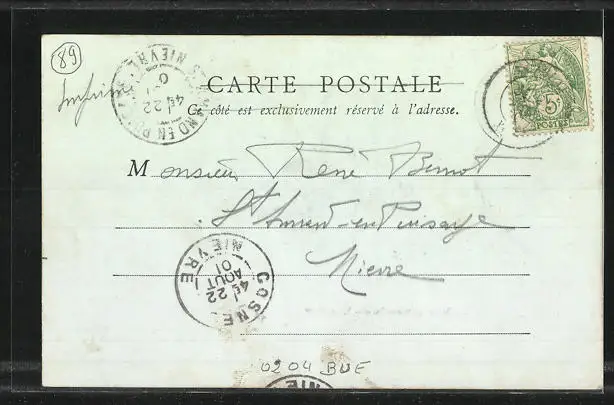 89
Imprimé
CARTE POSTALE
Ce côté est exclusivement réservé à l'adresse.
5c
POSTES
ST AMAND EN PUISAYE
NIEVRE
4E 22
Monsieur René Benoit
St Amand-en-Puisaye
Nièvre
COSNE
NIEVRE
4E 22
AOUT
01
0204 BUE
NIE